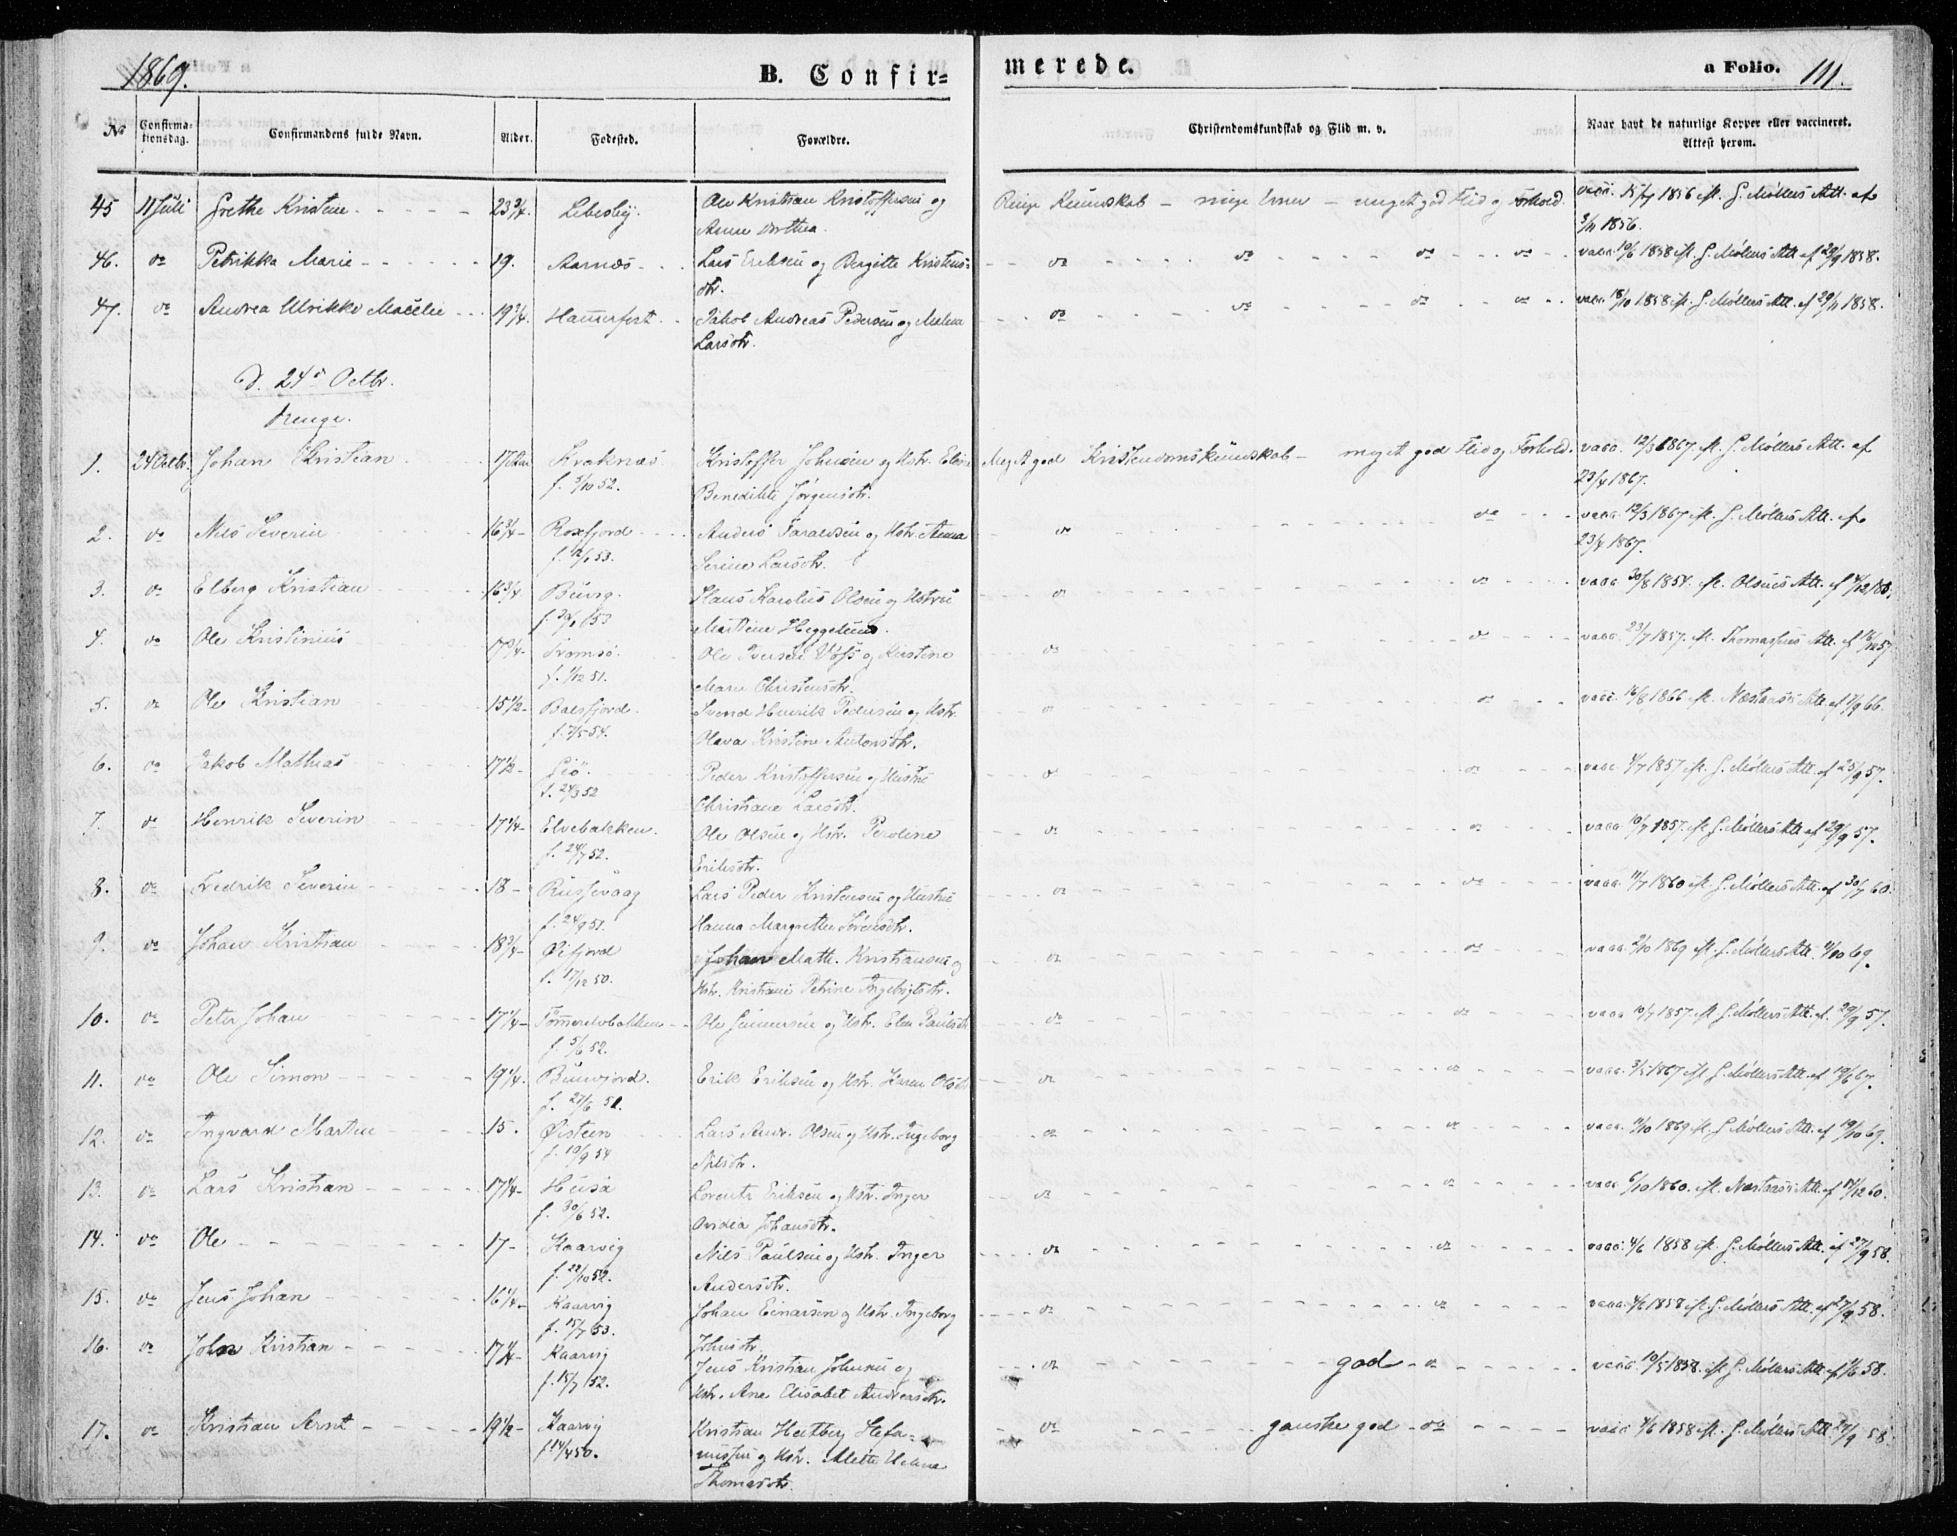 1869.
B. Confir=
merede.
a Folio. 111.
No
Confirma-
tionsdag.
Confirmandens fulde Navn.
Alder.
Fødested.
Forældre.
Christendomskundskab og Flid m. v.
Naar havt de naturlige Kopper eller vaccineret.
Attest herom.
45 11 Juli Grethe Kristine 23 3/4. Lebesby. Ole Kristian Kristoffersen og Ringe Kundskab – meget god Flid og Forhold. vacc. 15/7 1856 ifl. G. Møllers Att. af
Anne Dorthea. 3/11 1856.
46. do Petrikka Marie 19. Aarnæs Lars Eriksen og Bergitte Kristens= do do do do vacc. 10/6 1858 ifl. G. Møllers Att. af 29/9 1858.
dtr.
47. do Andrea Ulrikke Maëlie 19 3/4. Hammerfest Jakob Andreas Pedersen og Malena do do do do vacc. 18/10 1858 ifl. G. Møllers Att. af 29/11 1858.
Larsdtr.
D. 24de Octbr.
Drenge.
1. 24 Octbr. Johan Christian 17 Kraknæs Kristoffer Johnsen og Hstr. Meget god Kristendomskundskab – meget god Flid og Forhold. vacc. 12/3 1867. ifl. G. Møllers Att. af
f. 5/10 52. Benedikte Jørgensdtr. 23/4 1867.
2. do Nils Severin 16 3/4 Roxfjord Anders Taraldsen og Hstr. Anna do do vacc. 12/3 1867 ifl. G. Møllers Att. af
Serine Larsdtr. 23/4 1867.
3. do Elberg Kristian 16 3/4 Hans Karolus Olsen og Hstru do do vacc. 30/8 1854. ifl. Olsens Att. af
Martine Heggelund.
4. do Ole Kristinius 17 3/4 Tromsø. Ole Iversen Voss og Kirstine do do vacc. 23/7 1857. ifl. Thomassens Att. af
f. 1/12 51. Marie Christensdtr.
5. do Ole Kristian 15 1/2 Balsfjord. Svend Henrik Pedersen og Hstr. do do vacc. 16/8 1866 ifl. Næstaas's Att. af 1/9 66.
f. 7/5 54. Olava Kristine Antonsdtr.
6. do Jakob Mathias 17 1/2 Peder Kristoffersen og Hustru do do vacc. 4/7 1857 ifl. G. Møllers Att. af 25/9 57.
f. 24/3 52 Christiane Larsdtr.
7. do Henrik Severin 17 1/4 Elvebakken. Ole Olsen og Hstr. Peroline do do vacc. 10/7 1857. ifl. G. Møllers Att. af 29/9 57.
f. 24/7 52. Eriksdtr.
8. do Fredrik Severin 18 Russevaag Lars Peder Kristensen og Hustru do do vacc. 11/7 1860 ifl. G. Møllers Att. af 30/7 60.
f. 24/9 51. Hanna Margrethe Sørensdtr.
9. do Johan Kristian 18 3/4 Øifjord Johan Math. Kristiansen og do do vacc. 2/10 1869 ifl. G. Møllers Att. 4/10 69.
f. 17/12 50. Hstr. Kristiane Petrine Ingebrigtsdtr.
10. do Peter Johan 17 1/4 Tømmerelvbakken Ole Gunnersen og Hstr. Elen Paulsdtr. do do vacc. 10/7 1857. ifl. G. Møllers Att. af. 29/9 57.
f. 5/6 52.
11. do Ole Simon 19 1/4. Erik Eriksen og Hstr. Karen Olsdtr. do do vacc. 3/5 1867 ifl. G. Møllers Att. af 19/6 67.
12. do Ingvard Martin 15. Østeen Lars Andr. Olsen og Hstr. Ingeborg do do vacc. 11/10 1869 ifl. G. Møllers Att. af 19/10 69.
f. 10/9 54 Nilsdtr.
13. do Lars Kristian 17 1/4 Husø Lorents Eriksen og Hstr. Inger do do vacc. 6/10 1860. ifl. Næstaas's Att. af 14/12 60.
f. 30/6 52. Ovidia Johansdtr.
14. do Ole 17 Kaarvig Nils Paulsen og Hstr. Inger do do vacc. 4/6 1858 ifl. G. Møllers Att. af 27/9 58.
f. 22/10 52. Andersdtr.
15. do Jens Johan 16 1/4 Kaarvig Johan Einarsen og Hstr. Ingeborg do do vacc. 4/6 1858 ifl. G. Møllers Att. af 27/9 58.
f. 15/7 53. Johnsdtr.
16. do John Kristian 17 1/4 Kaarvig Jens Kristian Johnsen og do god do vacc. 10/5 1858. ifl. G. Møllers Att. af 1/6 58.
f. 15/7 52. Hstr. Ane Elisabet Andersdtr.
17. do Kristian Arnt 19 1/2 Kaarvig Kristian Hertberg Stefa= do ganske god do vacc. 4/6 1858 ifl. G. Møllers Att. 27/9 58.
f. 14/4 50. nussen og Hstr. Mette Helena
Thomasdtr.